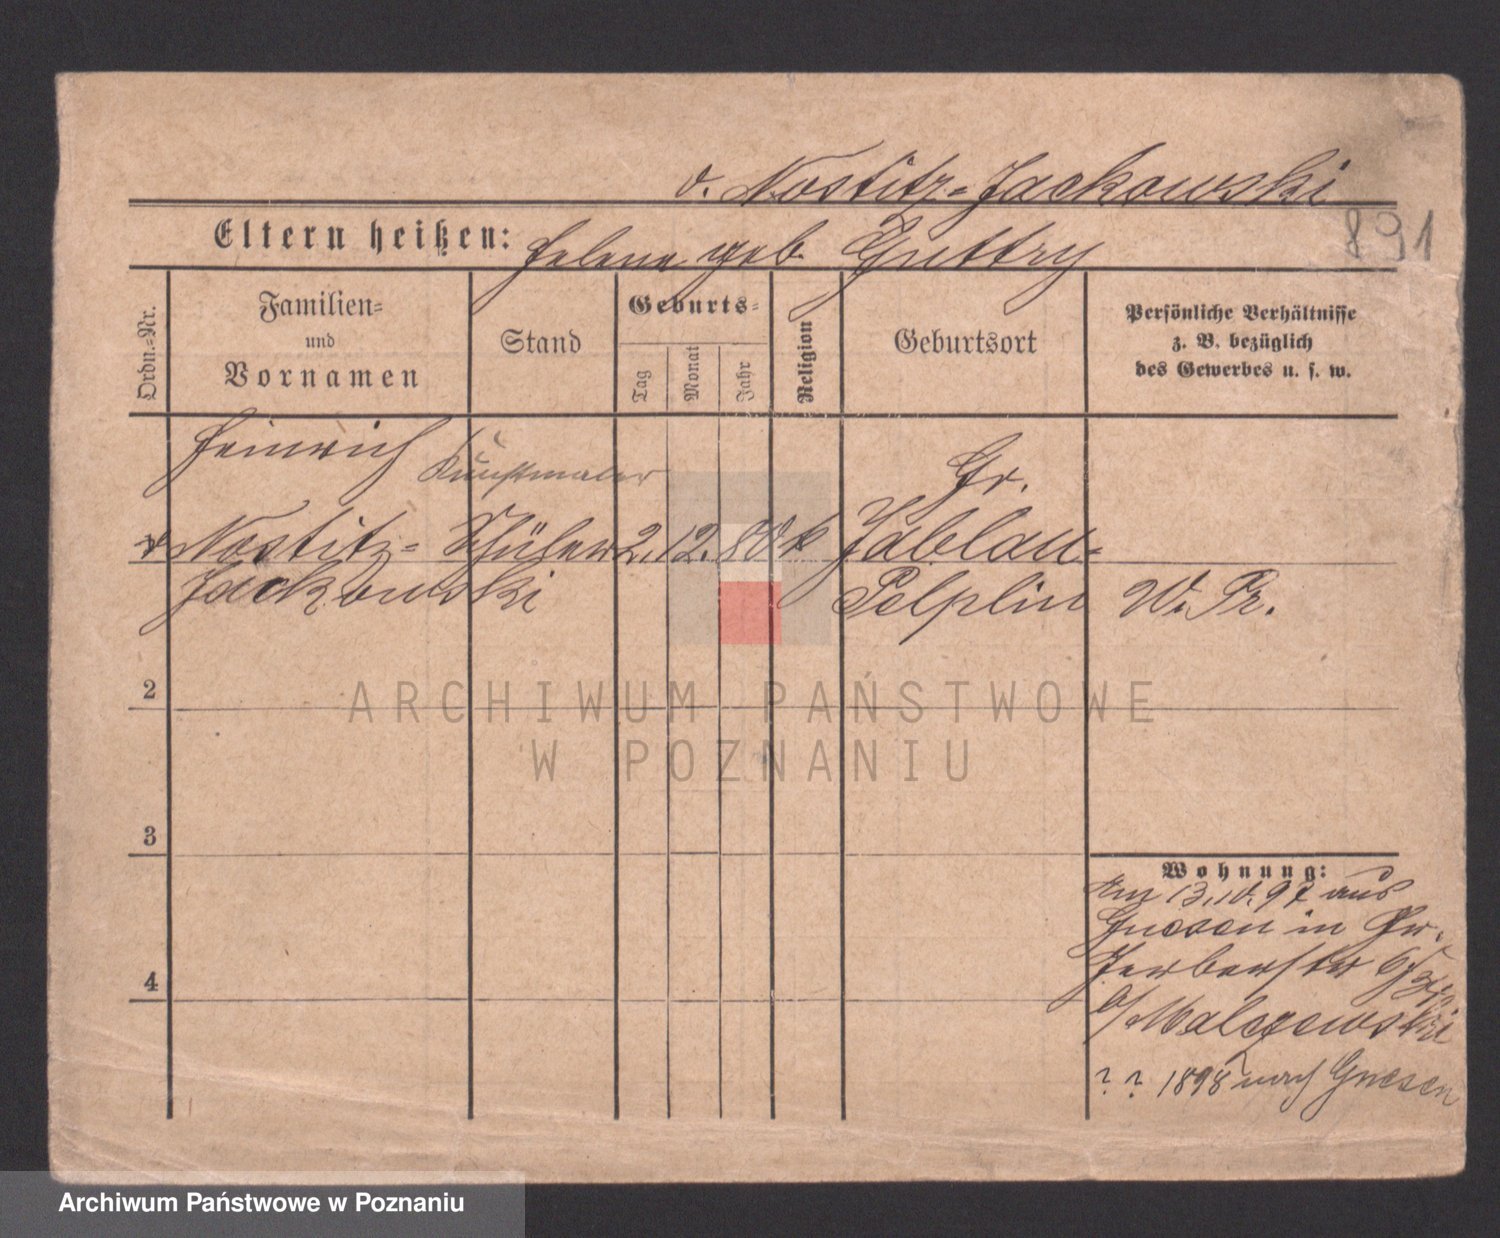 v. Nostitz-Jackowski
Eltern heißen: Helene geb. Guttry
891
Ordn.-Nr.
Familien-
und
Vornamen
Stand
Geburts-
Tag
Monat
Jahr
Religion
Geburtsort
Persönliche Verhältnisse
z. B. bezüglich
des Gewerbes u. s. w.
Heinrich
Kunstmaler
Gr.
v Nostitz- Schüler 2. 12. 80 k Jablau-
Jackowski Pelplin W. Pr.
2
3
4
Wohnung:
Am 13.10.97 aus
Gnesen in Gr.
Gerberstr 6
b/ Malczewski
? ? 1898 nach Gnesen
ARCHIWUM PAŃSTWOWE
W POZNANIU
Archiwum Państwowe w Poznaniu